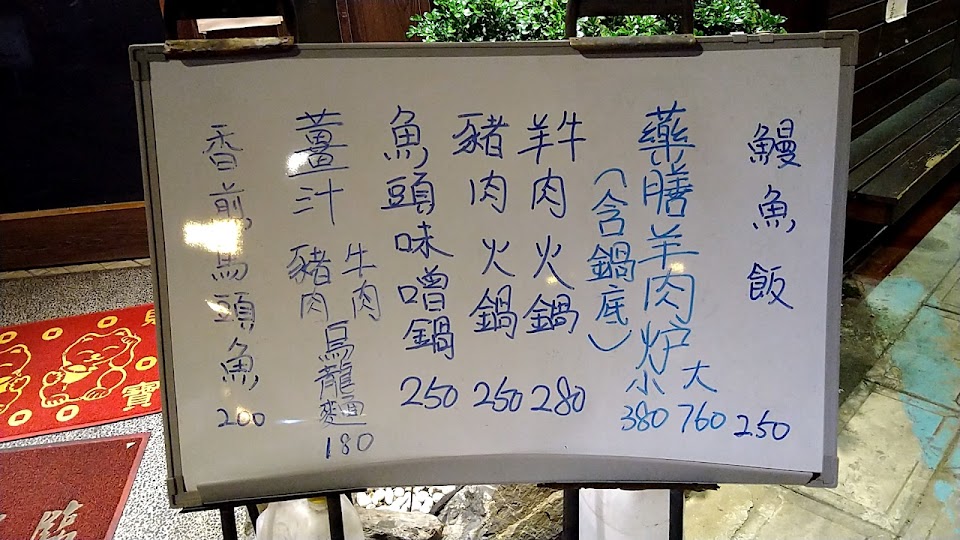 鰻魚飯 250
藥膳羊肉炉 小 380 大 760
(含鍋底)
羊牛肉火鍋 280
豬肉火鍋 250
魚頭味噌鍋 250
薑汁 牛肉 豬肉 烏龍麵 180
香煎馬頭魚 200
寶
臨